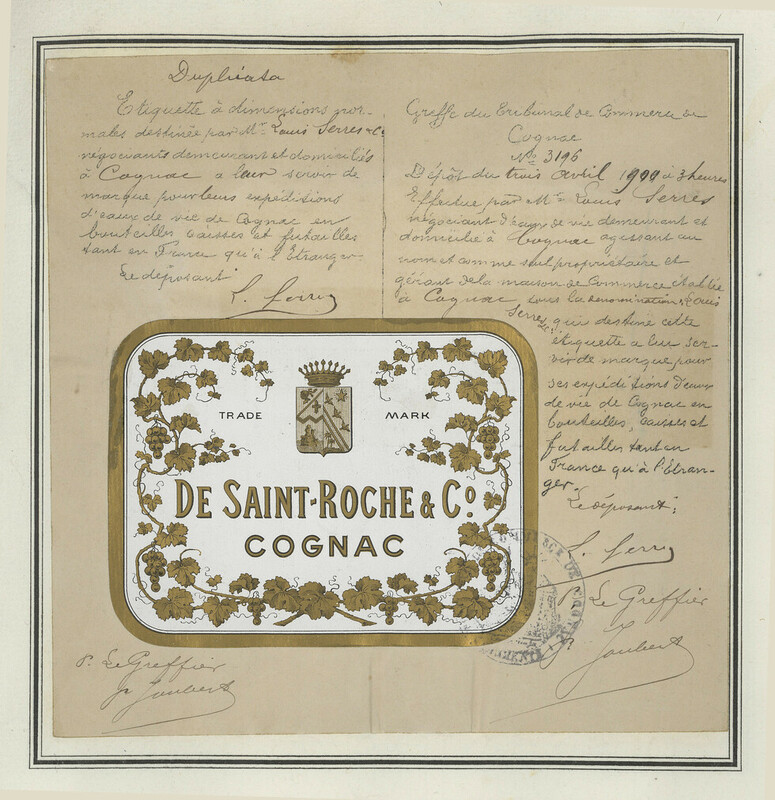 Duplicata
Etiquette à dimensions nor-
males destinée par Mr. Louis Serres & Co
négociants demeurant et domiciliés
à Cognac a leur servir de
marque pour leurs expéditions
d'eaux de vie de Cognac en
bouteilles caisses et futailles
tant en France qu'à l'Etranger.
Le déposant
L. Serres
Greffe du Tribunal de Commerce de
Cognac
No 3196
Dépôt du trois avril 1900 à 3 heures
Effectué par Mr. Louis Serres
négociant d'eaux de vie demeurant et
domicilié à Cognac agissant au
nom et comme seul propriétaire et
gérant de la maison de Commerce établie
à Cognac sous la dénomination Louis
Serres & Co qui destine cette
étiquette a leur ser-
vir de marque pour
ses expéditions d'eaux
de vie de Cognac en
bouteilles, caisses et
futailles tant en
France qu'à l'Etran-
ger.
Le déposant;
L. Serres
P. Le Greffier
Joubert
TRADE MARK
DE SAINT-ROCHE & Co.
COGNAC
P. Le Greffier
Joubert